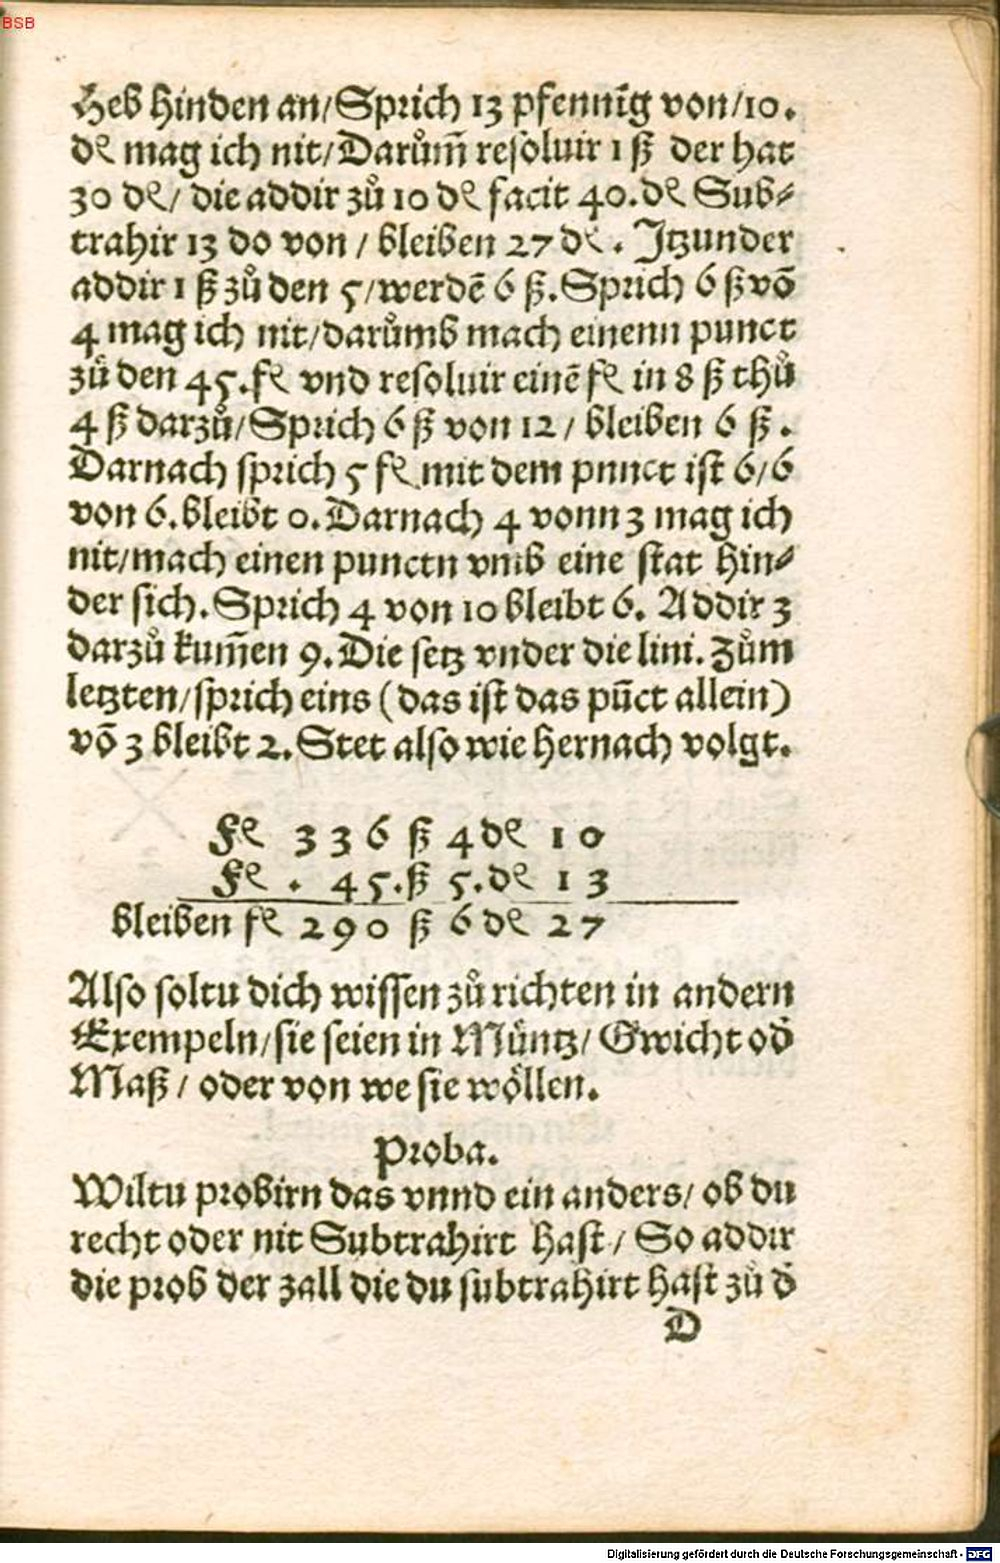 BSB
Heb hinden an/Sprich 13 pfennīg von/10.
₰ mag ich nit/Darům̄ resoluir 1 ß der hat
30 ₰/ die addir zů 10 ₰ facit 40.₰ Sub⸗
trahir 13 do von / bleiben 27 ₰. Jtzunder
addir 1 ß zů den 5/werdē 6 ß.Sprich 6 ß vō
4 mag ich nit/darůmb mach einenn punct
zů den 45.fl vnd resoluir einē fl in 8 ß thů
4 ß darzů/Sprich 6 ß von 12/ bleiben 6 ß.
Darnach sprich 5 fl mit dem punct ist 6/6
von 6.bleibt 0.Darnach 4 vonn 3 mag ich
nit/mach einen punctn vmb eine stat hin⸗
der sich.Sprich 4 von 10 bleibt 6. Addir 3
darzů kum̄en 9.Die setz vnder die lini.Zům
letzten/sprich eins (das ist das pūct allein)
vō 3 bleibt 2.Stet also wie hernach volgt.
fl 336 ß 4 ₰ 10
fl . 45.ß 5.₰ 13
bleiben fl 290 ß 6 ₰ 27
Also soltu dich wissen zů richten in andern
Exempeln/sie seien in Müntz/ Gwicht od̄
Maß/ oder von we sie wöllen.
Proba.
Wiltu probirn das vnnd ein anders/ ob du
recht oder nit Subtrahirt hast/ So addir
die prob der zall die du subtrahirt hast zů d̄
D
Digitalisierung gefördert durch die Deutsche Forschungsgemeinschaft - DFG